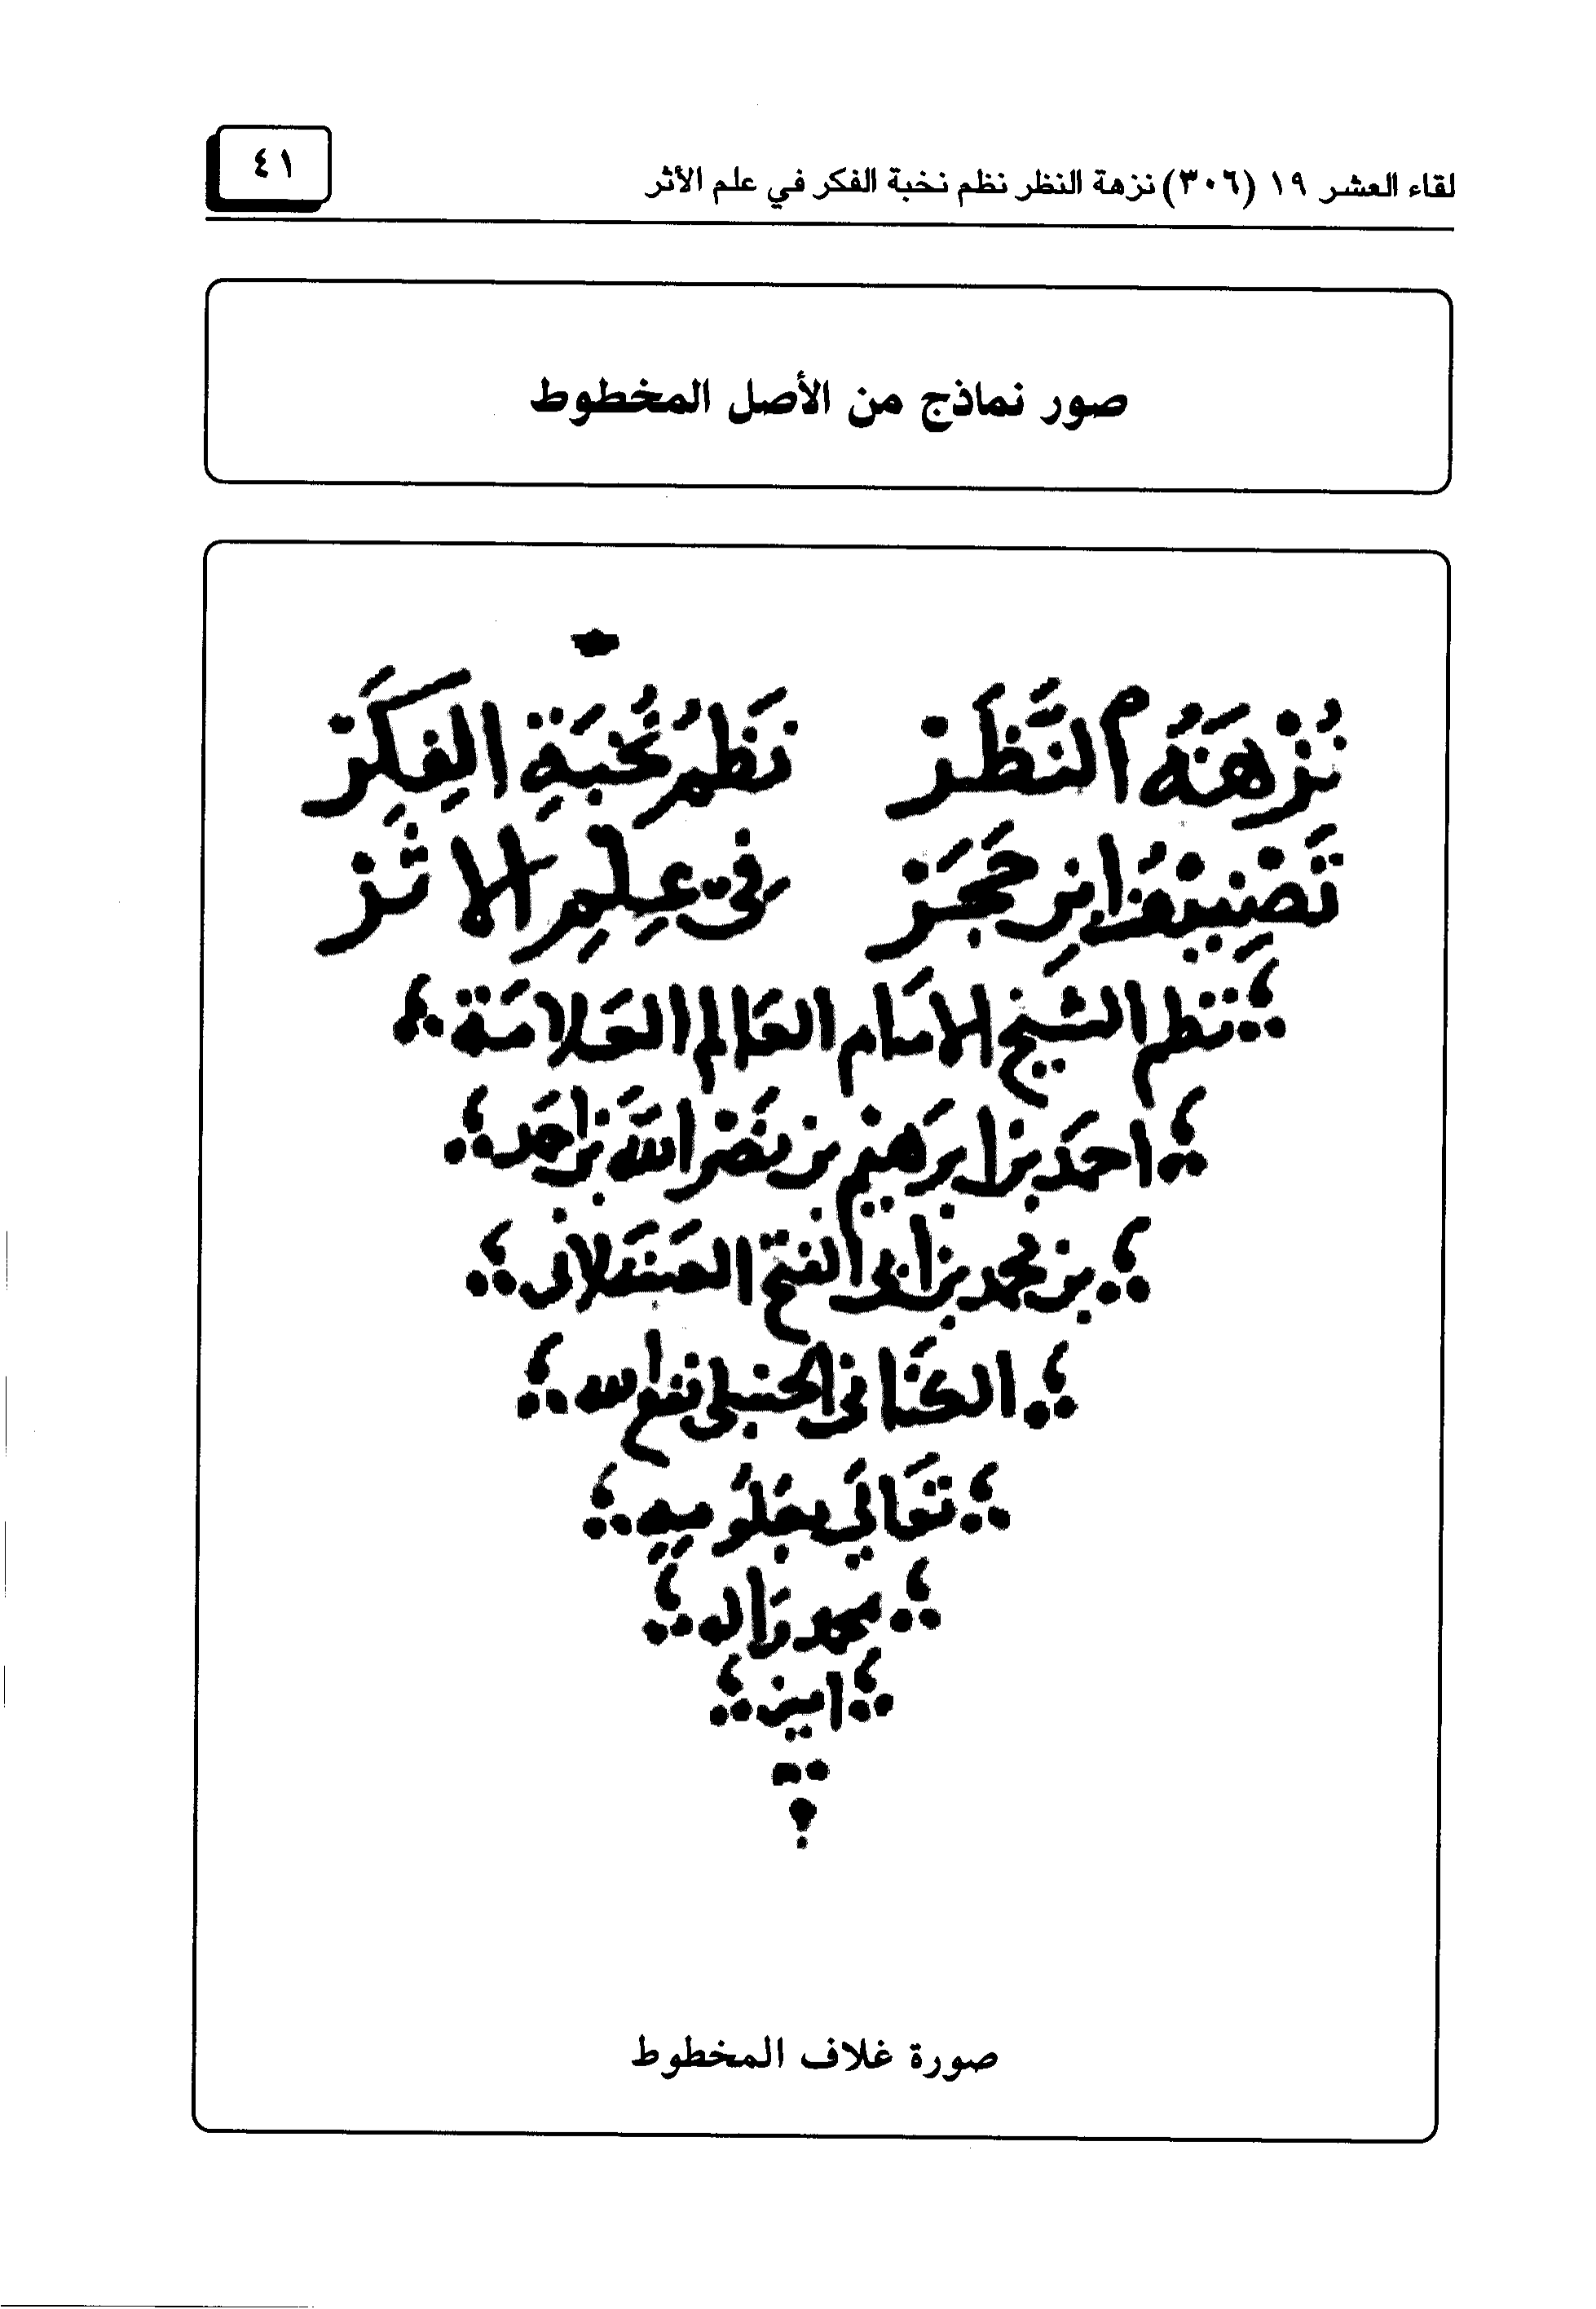 لقاء العشر ١٩ (٣٠٦) نزهة النظر نظم نخبة الفكر في علم الأثر
٤١
صور نماذج من الأصل المخطوط
نُزْهَةُ النَّظَرْ نَظْمُ نُخْبَةِ الفِكَرْ
تَصْنِيفُ ابْنِ حَجَرْ فِي عِلْمِ الاثَرْ
نظم الشيخ الامَام العَالم العَلامَة
احمَد بن ابرَهيم بن نصر اللَّه بن احمَد
بن محمد بن ابي الفتح العسقلاني
الكنَاني الحنبلي نفع الله
تعَالَي بعُلُومِهِ
بمحمد وَاله
امين
صورة غلاف المخطوط